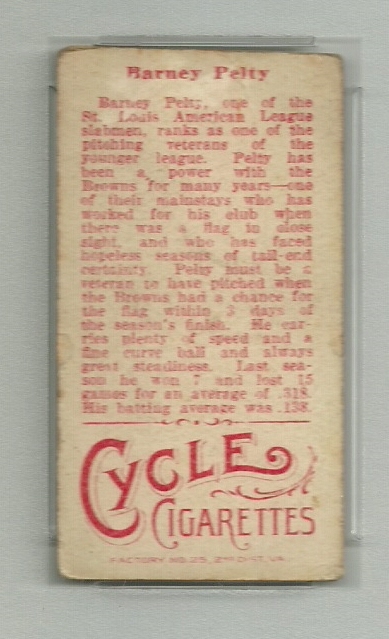 Barney Pelty
Barney Pelty, one of the
St. Louis American League
slabmen, ranks as one of the
pitching veterans of the
younger league. Pelty has
been a power with the
Browns for many years—one
of their mainstays who has
worked for his club when
there was a flag in close
sight, and who has faced
hopeless seasons of tail-end
certainty. Pelty must be a
veteran to have pitched when
the Browns had a chance for
the flag within 3 days of
the season's finish. He car-
ries plenty of speed and a
fine curve ball and always
great steadiness. Last sea-
son he won 7 and lost 15
games for an average of .318.
His batting average was .138.
CYCLE
CIGARETTES
FACTORY NO. 25, 2ND DIST. VA.